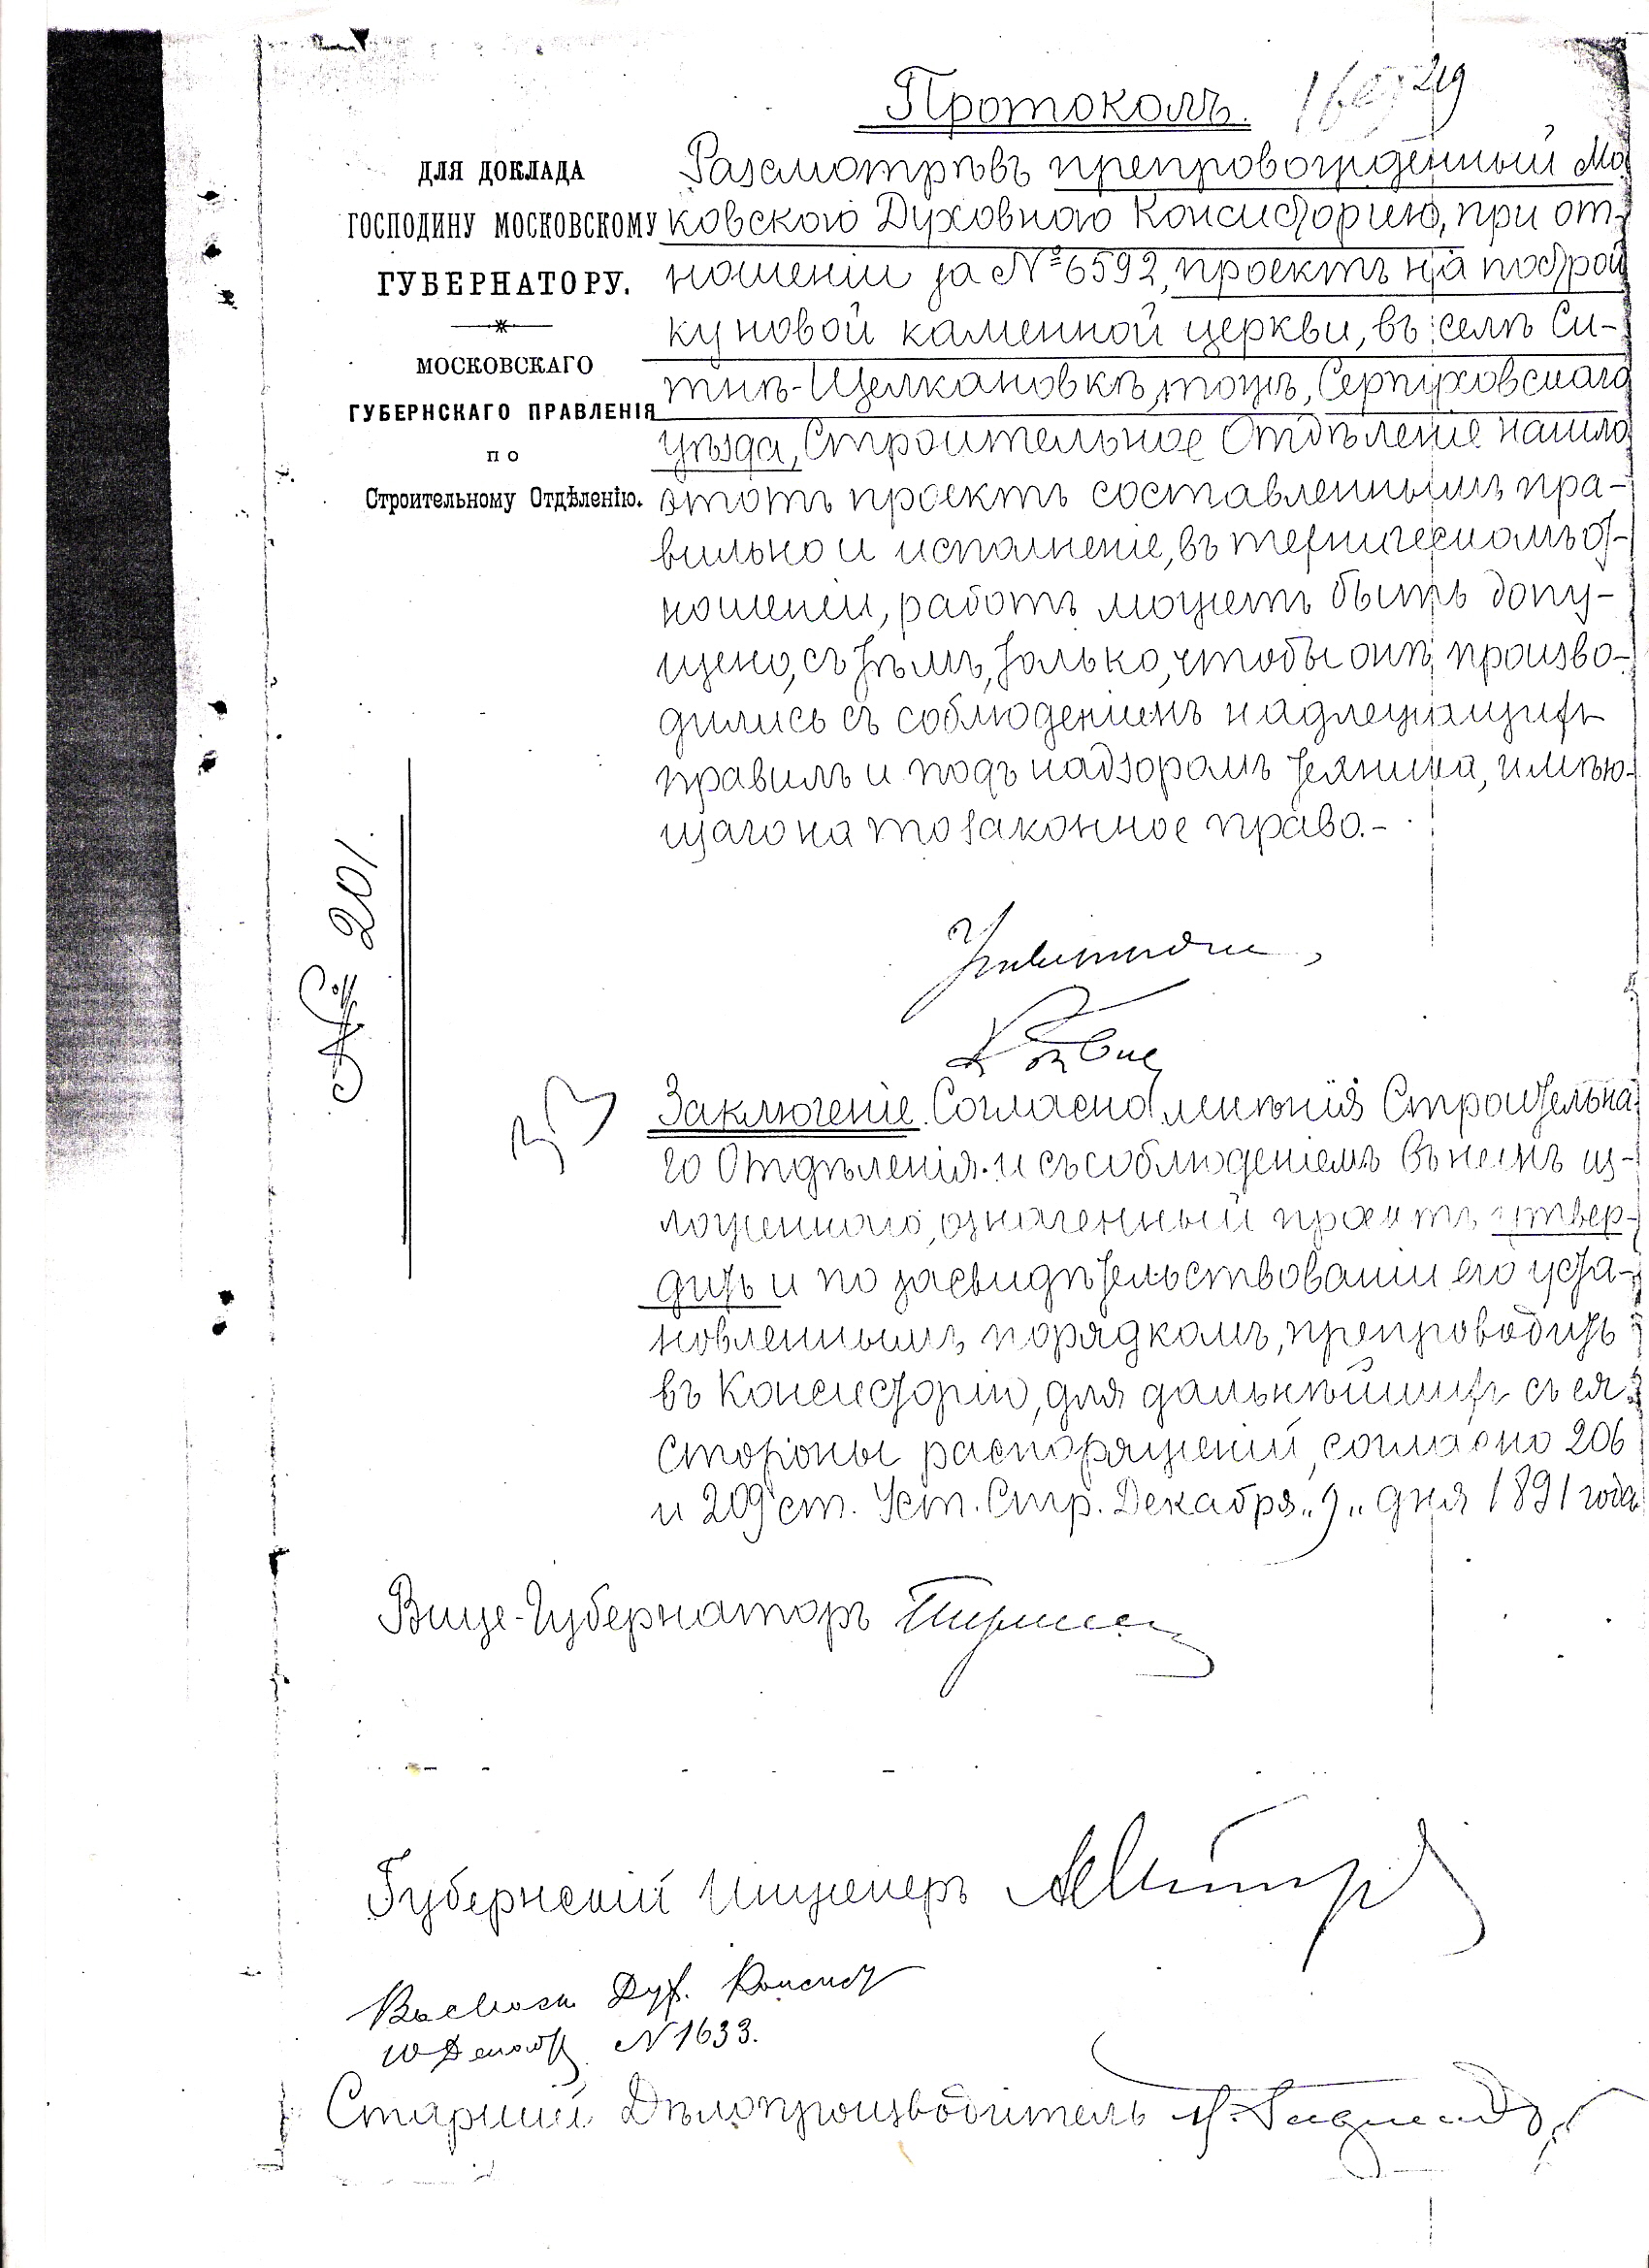 219
Протоколъ.
ДЛЯ ДОКЛАДА
ГОСПОДИНУ МОСКОВСКОМУ
ГУБЕРНАТОРУ.
МОСКОВСКАГО
ГУБЕРНСКАГО ПРАВЛЕНІЯ
ПО
Строительному Отдѣленію.
№ 201.
Разсмотрѣвъ препровожденный Мо
ковскою Духовною Консисторіею, при от-
ношеніи за № 6592, проектъ на построй
ку новой каменной церкви, въ селѣ Си-
тнѣ-Щелкановкѣ, тожъ, Серпуховскаго
уѣзда, Строительное Отдѣленіе нашло
этотъ проектъ составленнымъ пра-
вильно и исполненіе, въ техническомъ от-
ношеніи, работъ можетъ быть допу-
щено, съ тѣмъ, только, чтобы онѣ произво-
дились съ соблюденіемъ надлежащихъ
правилъ и подъ надзоромъ техника, имѣю-
щаго на то законное право.-
Заключеніе. Согласно мнѣнія Строительна
го Отдѣленія и съ соблюденіемъ въ немъ из-
ложеннаго, означенный проектъ утвер-
дить и по засвидѣтельствованіи его уста-
новленнымъ порядкомъ, препроводить
въ Консисторію, для дальнѣйшихъ съ ея
стороны распоряженій, согласно 206
и 209 ст. Уст. Стр. Декабря „9„ дня 1891 года
Вице-Губернаторъ
Губернскій Инженеръ
Дух. Консист
10 Декабр № 1633.
Старшій Дѣлопроизводитель